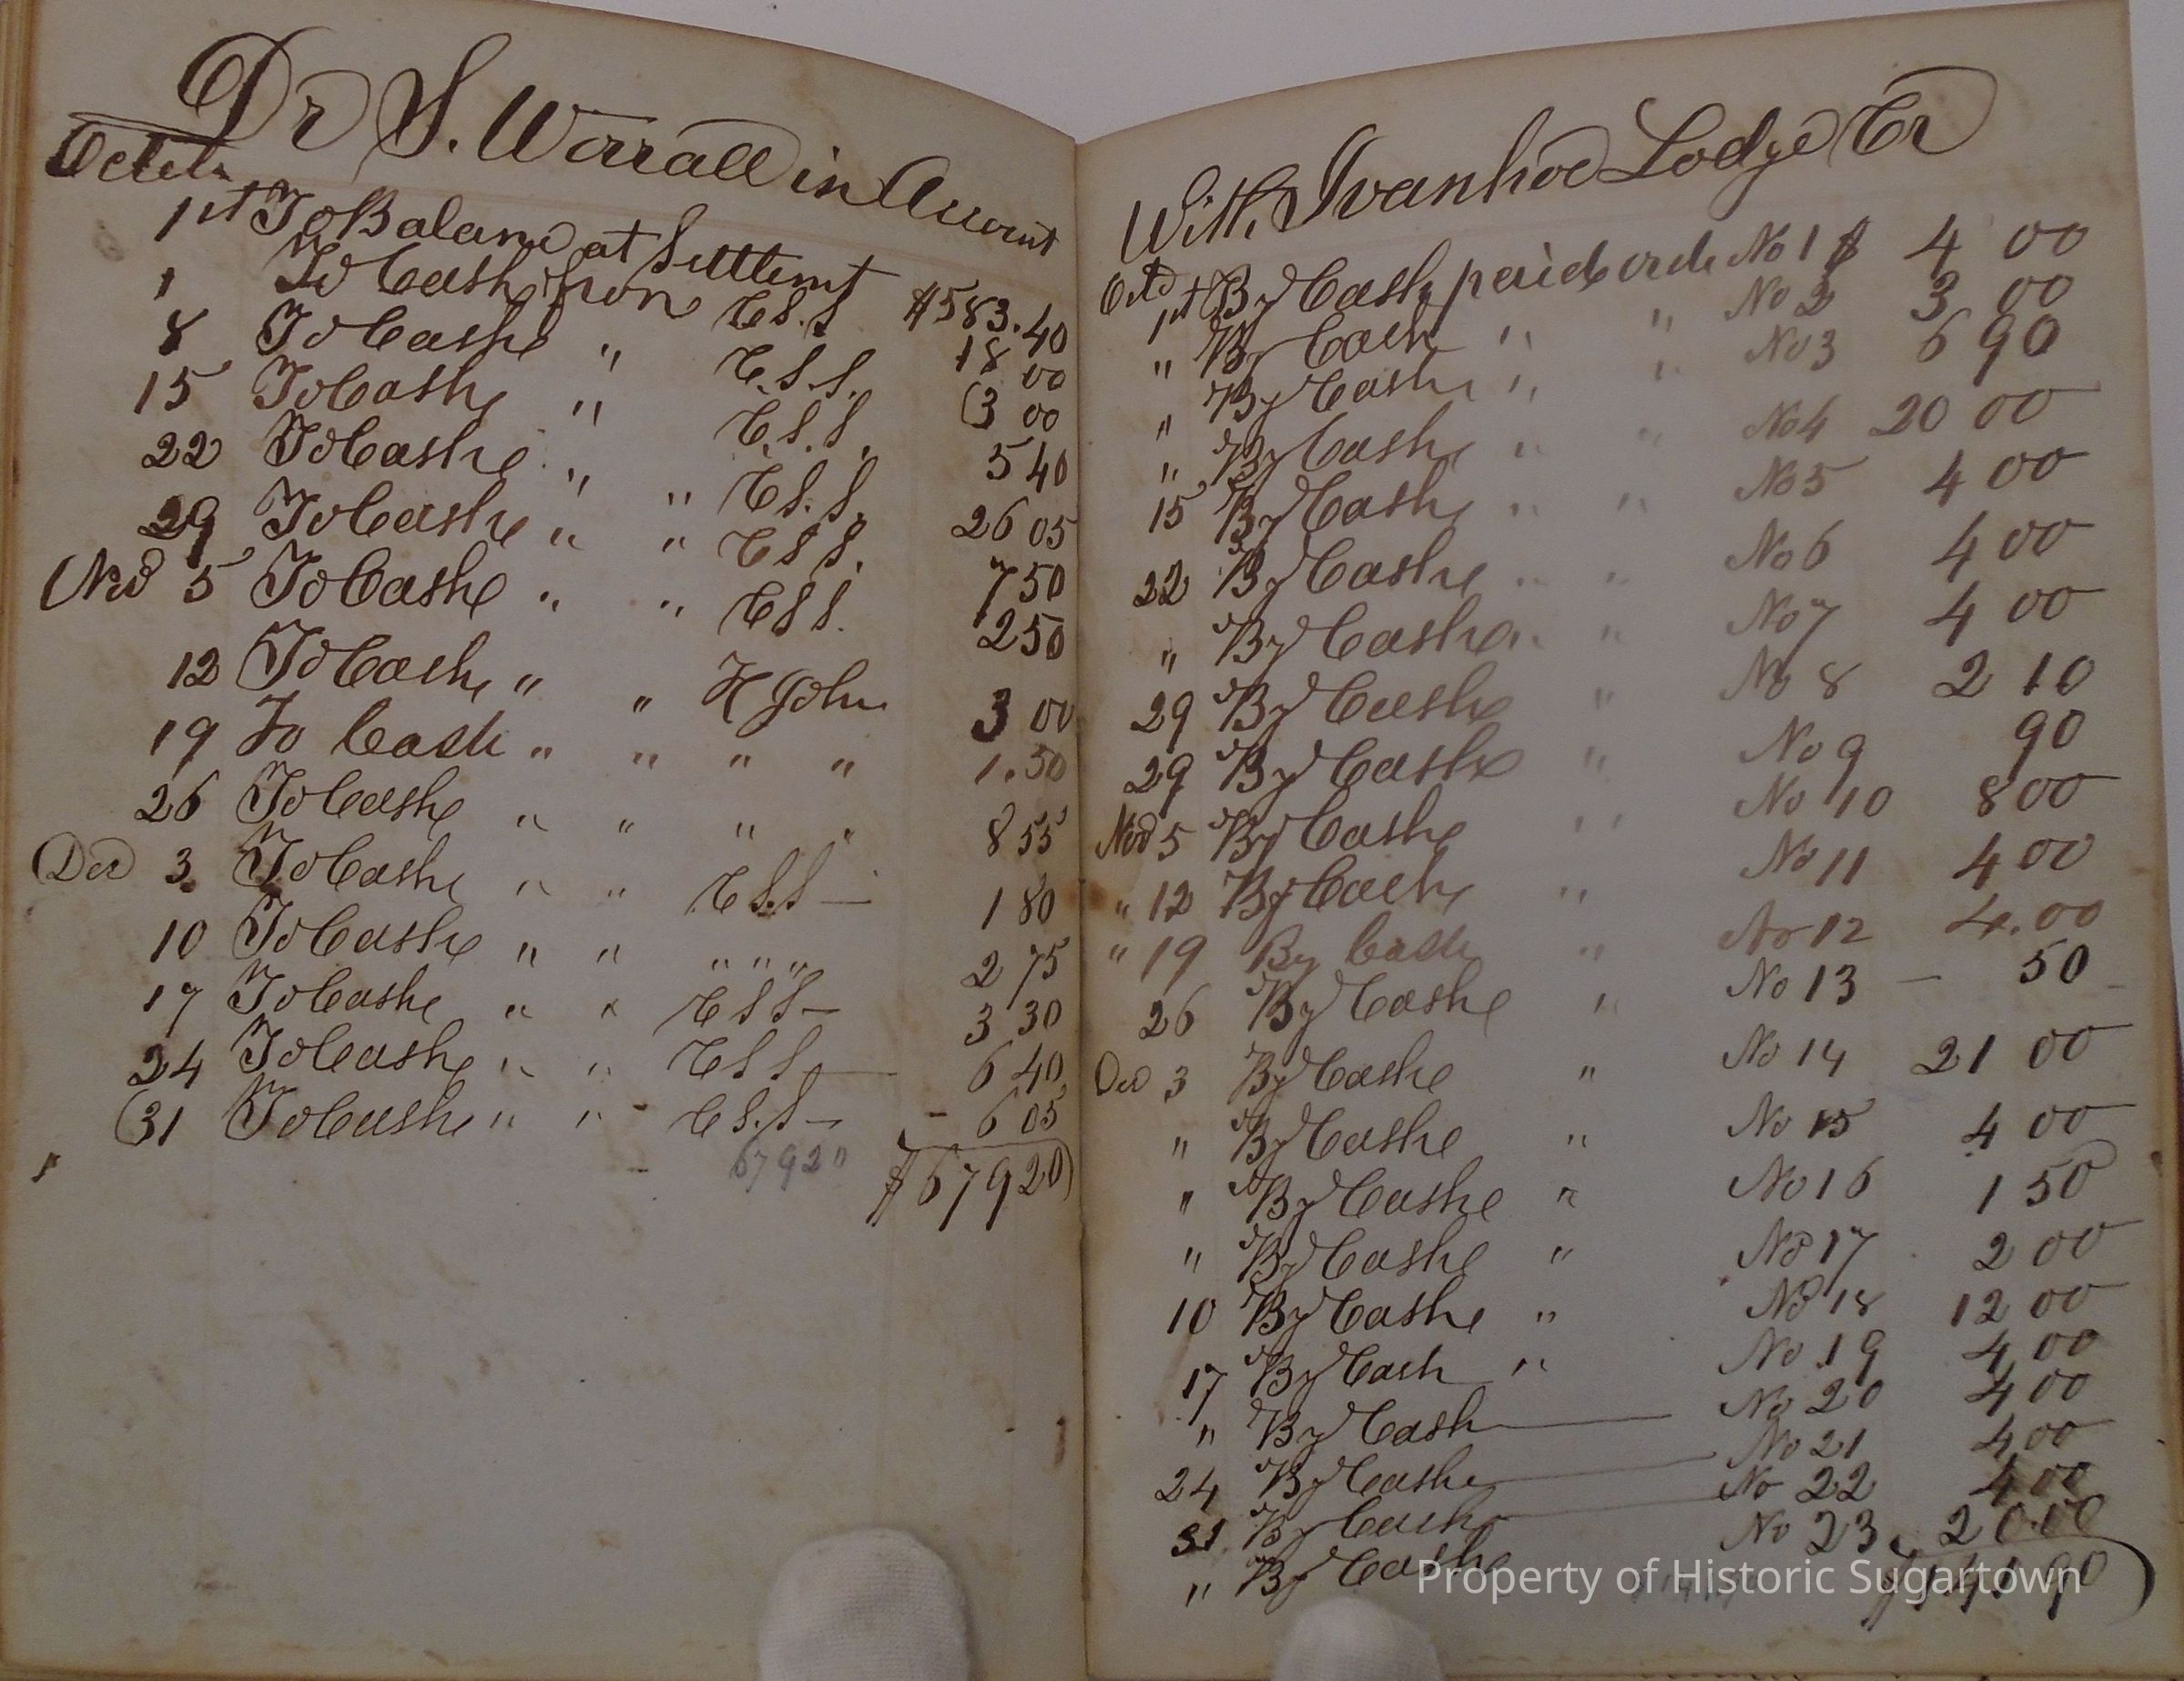 Dr S. Worrall in Account
Octobr
1st To Balance at Settlemt $583.40
1 To Cash from C.S.S 18 00
8 To Cash " C.S.S. 3 00
15 To Cash " C.S.S. 5 40
22 To Cash " " C.S.S. 26 05
29 To Cash " " C.S.S. 7 50
Nov 5 To Cash " " C.S.S. 2 50
12 To Cash " " H John 3 00
19 To Cash " " " " 1.50
26 To Cash " " " " 8 55
Dec 3 To Cash " " C.S.S — 1 80
10 To Cash " " " " " 2 75
17 To Cash " " C.S.S — 3 30
24 To Cash " " C.S.S — 6 40
31 To Cash " " C.S.S — 6 05
679 20 $679 20
With Ivanhoe Lodge Cr
Octo 1st By Cash paid ordr No 1 $ 4 00
" By Cash " " No 2 3 00
" By Cash " " No 3 6 90
" By Cash " " No 4 20 00
15 By Cash " " No 5 4 00
22 By Cash " " No 6 4 00
" By Cash " " No 7 4 00
29 By Cash " No 8 2 10
29 By Cash " No 9 90
Nov 5 By Cash " No 10 8 00
" 12 By Cash " No 11 4 00
" 19 By Cash " No 12 4.00
26 By Cash " No 13 — 50
Dec 3 By Cash " No 14 21 00
" By Cash " No 15 4 00
" By Cash " No 16 1 50
" By Cash " No 17 2 00
10 By Cash " No 18 12 00
17 By Cash " No 19 4 00
" By Cash — No 20 4 00
24 By Cash — No 21 4 00
31 By Cash — No 22 4 00
" By Cash No 23 20.00
Property of Historic Sugartown